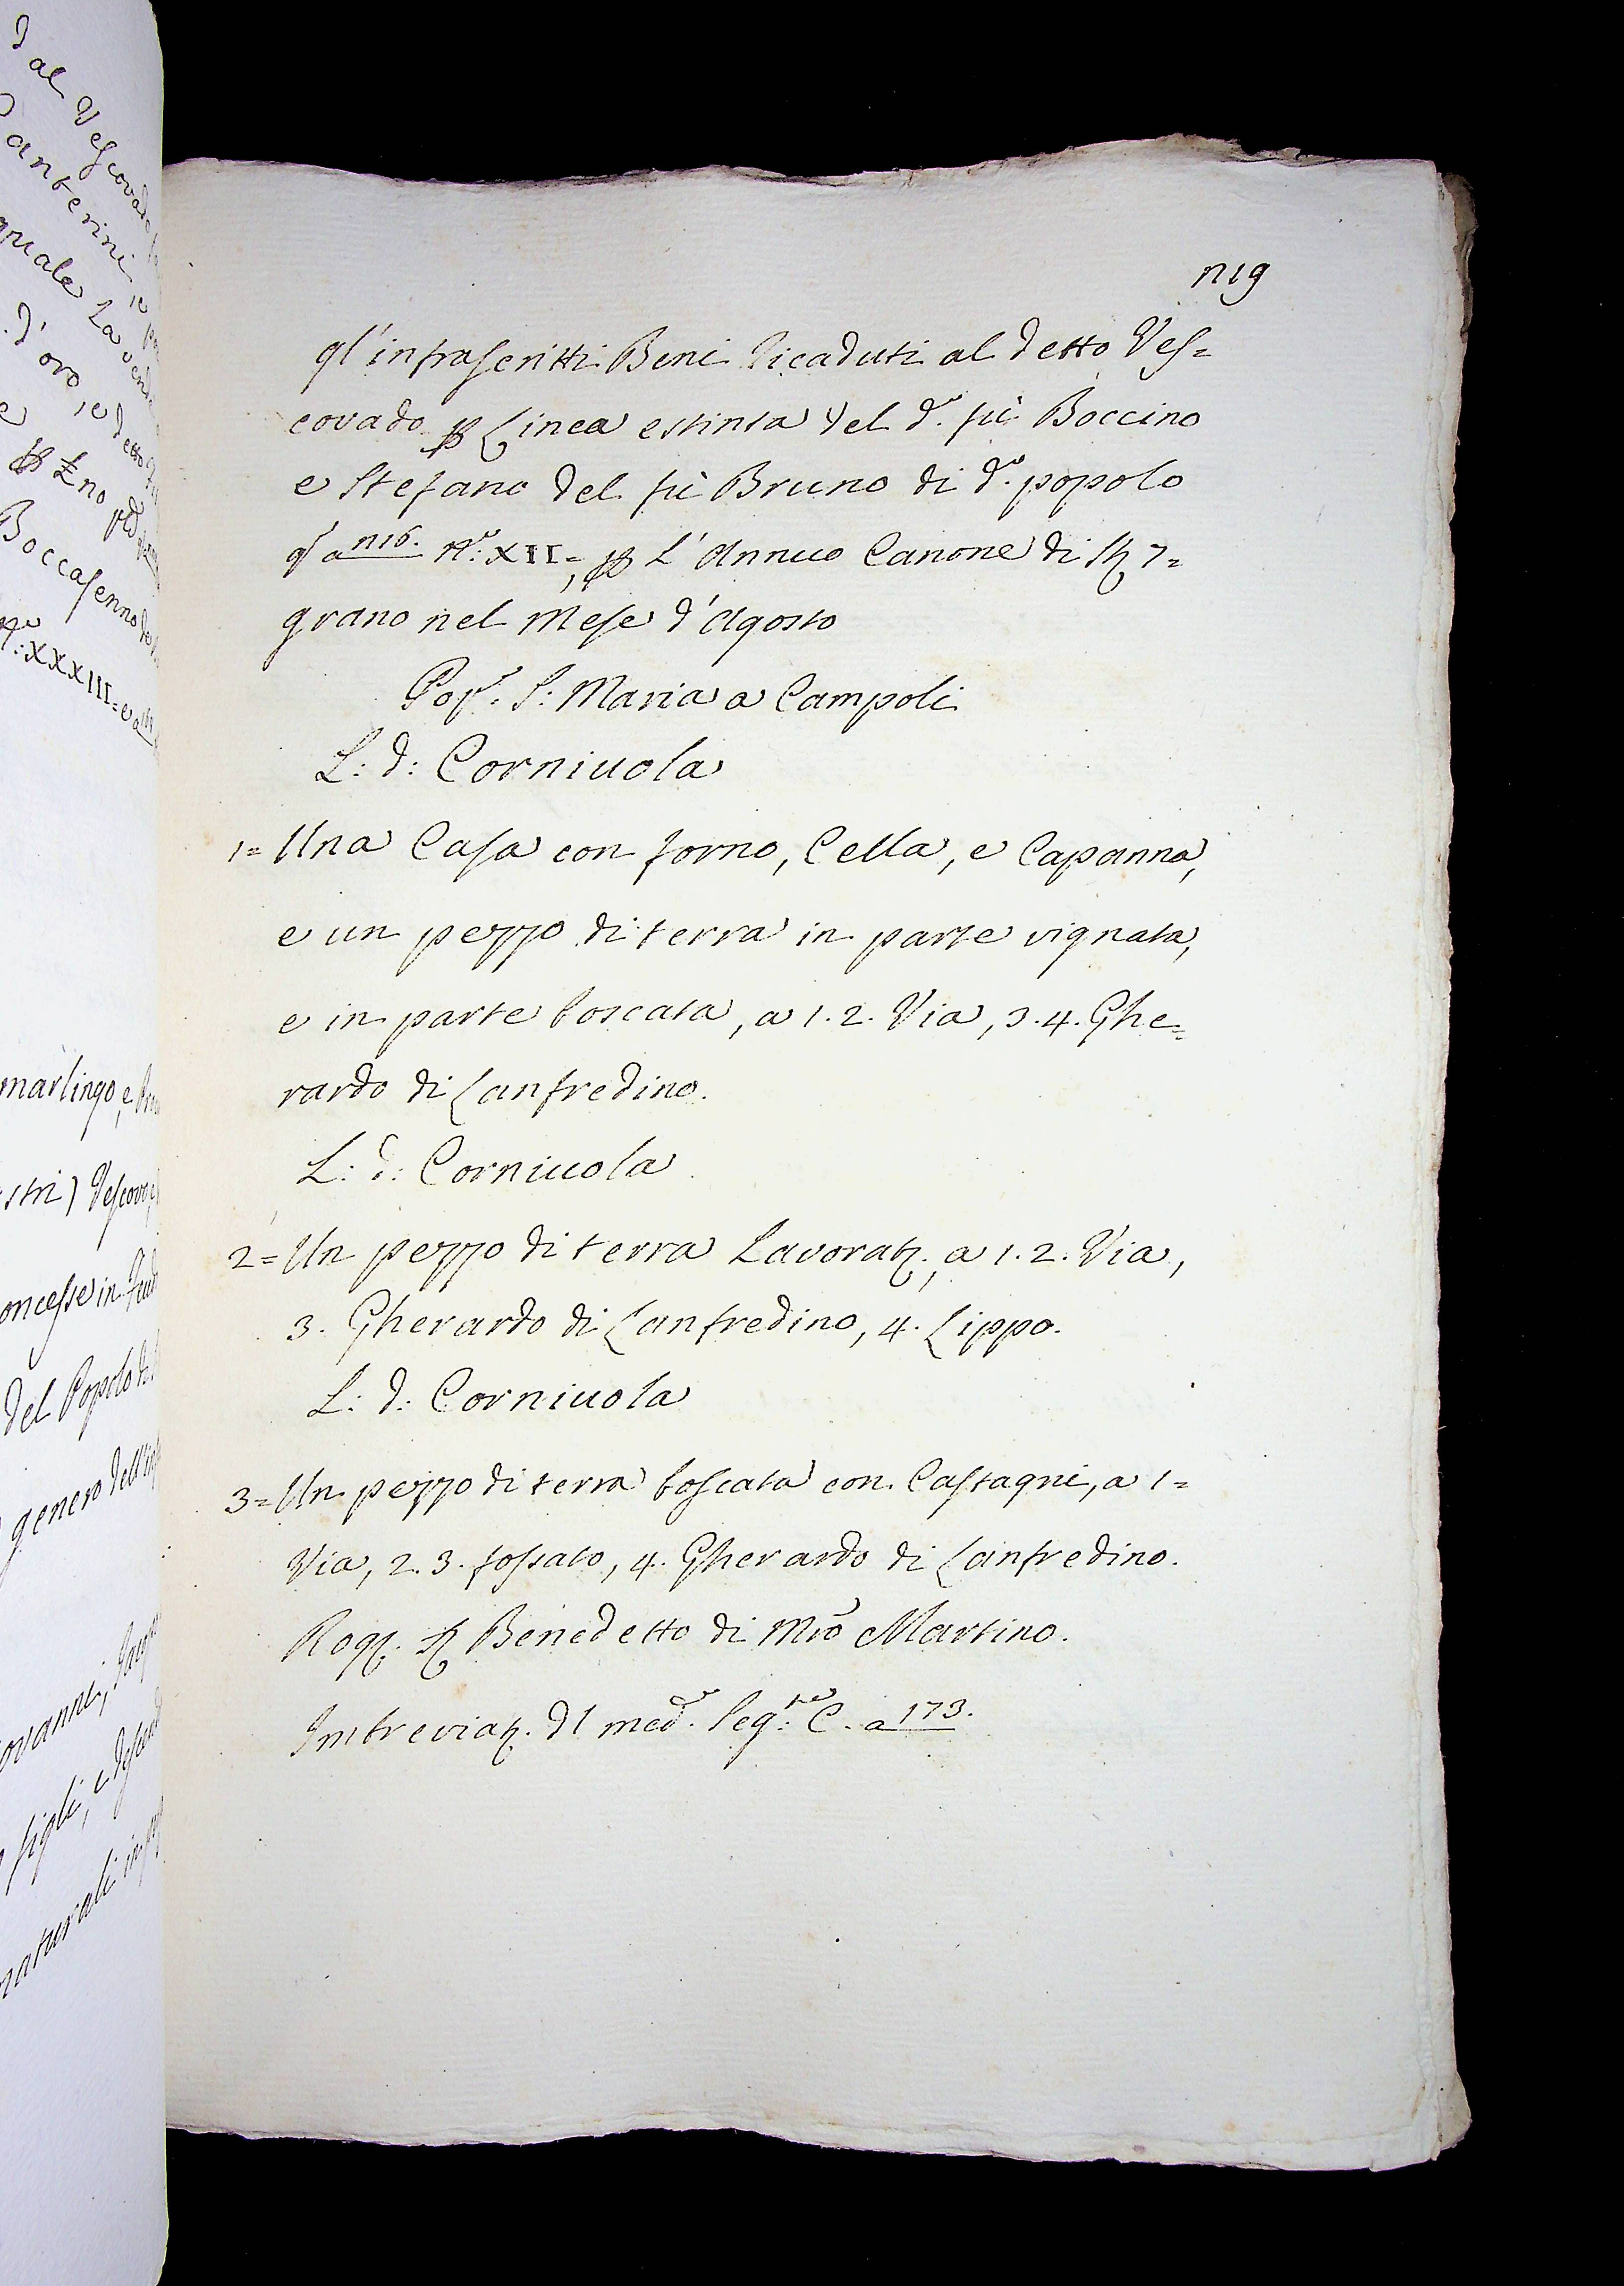 al Vescovado
anterini, e
quale La vend
d'oro, e detto
e
Boccasenno
N.º: XXXIII = e a
marlingo, e
stri) Vescovo
oncesse in feud
del Popolo di
genero dell'
ovanni,
figli, e descend
naturali in
n19
gl'infrascritti Beni Ricaduti al detto Ves=
covado p Linea estinta del d.º fù Boccino
e Stefano del fù Bruno di d.º popolo
q.ª a n16. N.º: XII=, p L'Annuo Canone di St 7=
grano nel Mese d'Agosto
Pop.º S: Maria a Campoli
L: d: Corniuola
1= Una Casa con forno, Cella, e Capanna,
e un pezzo di terra in parte vignata,
e in parte boscata, a 1. 2. Via, 3. 4. Ghe=
rardo di Lanfredino.
L: d: Corniuola
2= Un pezzo di terra Lavorat., a 1. 2. Via,
3. Gherardo di Lanfredino, 4. Lippo.
L: d: Corniuola
3= Un pezzo di terra boscata con Castagni, a 1=
Via, 2. 3. fossato, 4. Gherardo di Lanfredino.
Rog. S Benedetto di Mrõ Martino.
Imbreviat. dl med.º seg.te: C. a 173.